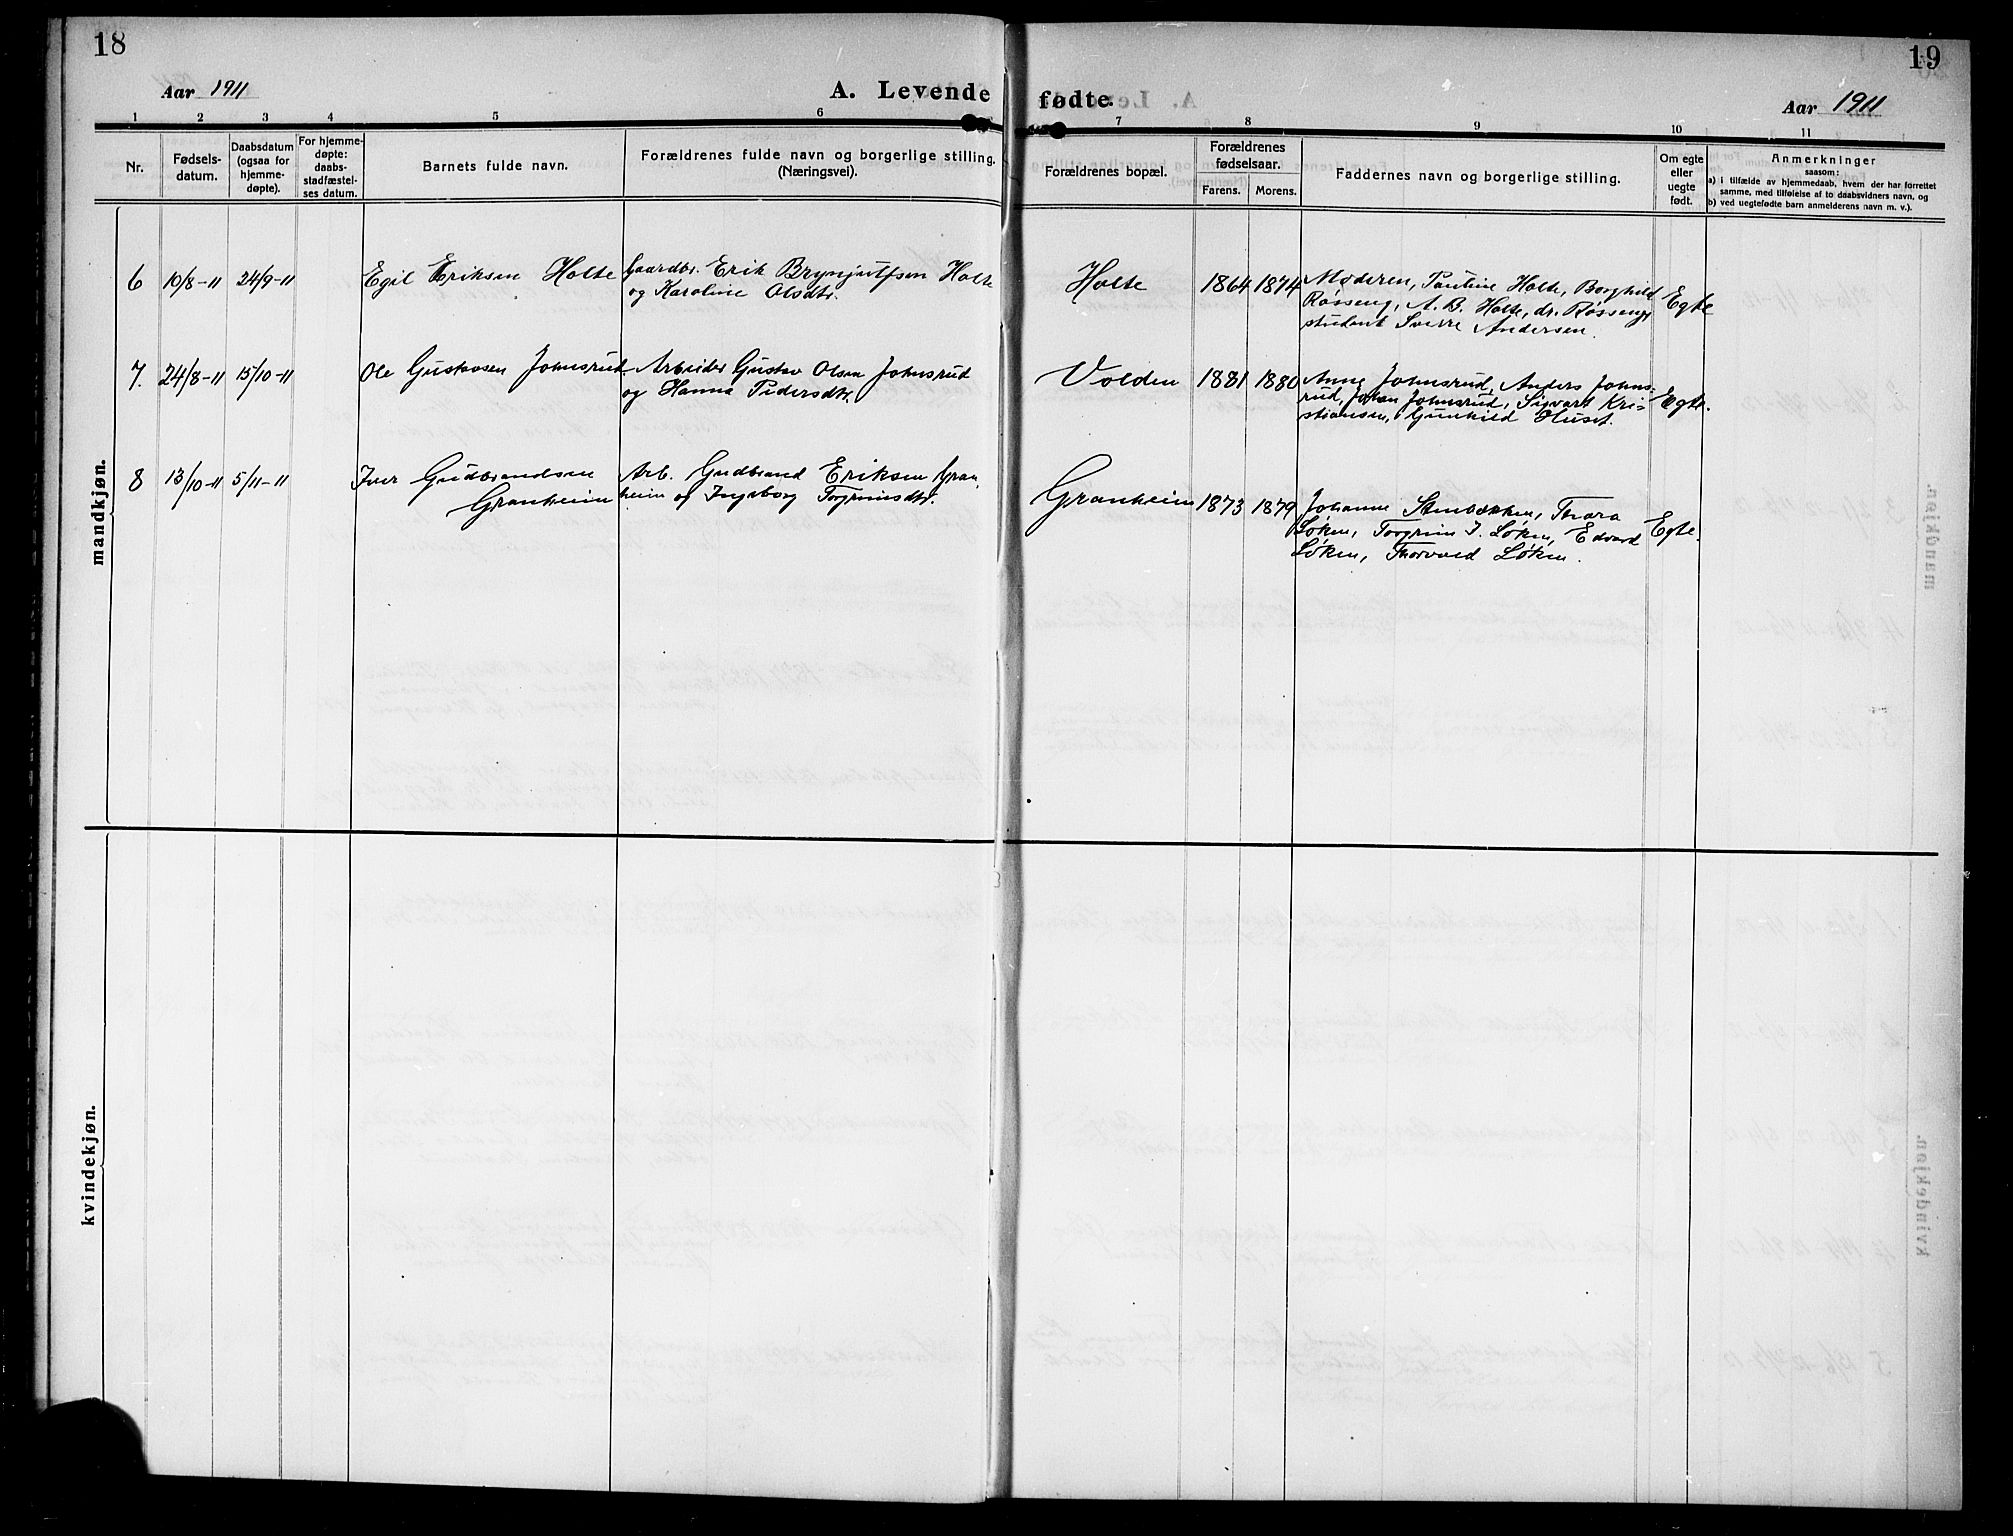 18
19
Aar 1911
A. Levende fødte.
Aar 1911
1 2 3 4 5 6 7 8 9 10 11
Nr.
Fødsels-
datum.
Daabsdatum
(ogsaa for
hjemme-
døpte).
For hjemme-
døpte:
daabs-
stadfæstel-
ses datum.
Barnets fulde navn.
Forældrenes fulde navn og borgerlige stilling.
(Næringsvei).
Forældrenes bopæl.
Forældrenes
fødselsaar.
Farens. Morens.
Faddernes navn og borgerlige stilling.
Om egte
eller
uegte
født.
Anmerkninger
saasom:
a) i tilfælde av hjemmedaab, hvem der har forrettet
samme, med tilføielse av to daabsvidners navn, og
b) ved uegtefødte barn anmelderens navn m. v.).
mandkjøn.
6 10/8-11 24/9-11 Egil Eriksen Holte
Gaardbr. Erik Brynjulfsen Holte
og Karoline Olsdtr.
Holte 1864 1874
Moderen, Pauline Holte, Borghild
Røsseng, A. B. Holte, dr. Røsseng,
student Sverre Andersen.
Egte
7. 24/8-11 15/10-11 Ole Gustavsen Johnsrud
Arbeider Gustav Olsen Johnsrud
og Hanna Pedersdtr.
Volden 1881 1880
Anne Johnsrud, Anders Johns-
rud, Johan Johnsrud, Sigvart Kri-
stiansen, Gunhild Huset.
Egte.
8 13/10-11 5/11-11 Iver Gudbrandsen
Granheim
Arb. Gudbrand Eriksen Gran-
heim og Ingeborg Torgrimsdtr.
Granheim 1873 1879
Johanne Stenbakken, Thora
Løken, Torgrim I. Løken, Edvard
Løken, Thorvald Løken.
Egte.
kvindekjøn.